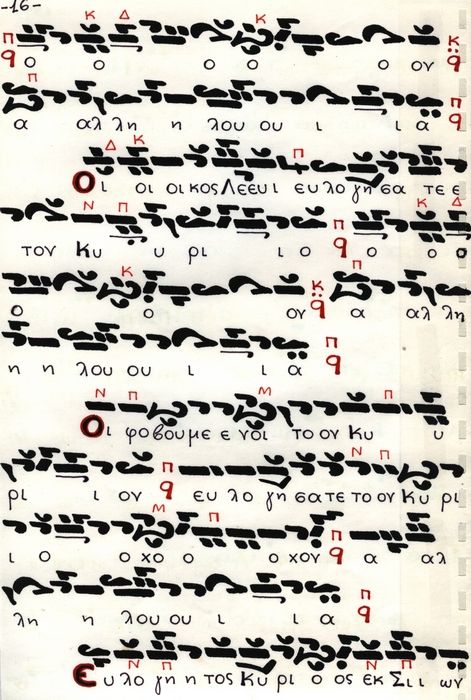 -16-
ο ο ο ο ο ον
α αλ λη η λου ου ι ι α
Οι οι οι κος Λεευι ευ λο γη σα τε ε
τον Κυ υ ρι ι ο ο ο ο
ο ο ον α αλ λη
η η λου ου ι ι α
Οι φο βου με ε νοι το ον Κυ υ
ρι ι ον ευ λο γη σα τε το ον Κυ ρι
ι ο ο χο ο ο χον α αλ
λη η λου ου ι ι α
Ευ λο γη η τος Κυ ρι ο ος εκ Σιι ων